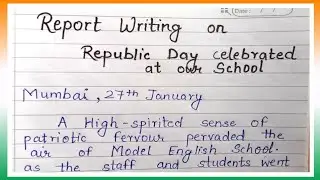 Date: / /
Report Writing on
Republic Day celebrated
at our School
Mumbai, 27th January
A High-spirited sense of
patriotic fervour pervaded the
air of Model English School.
as the staff and students went